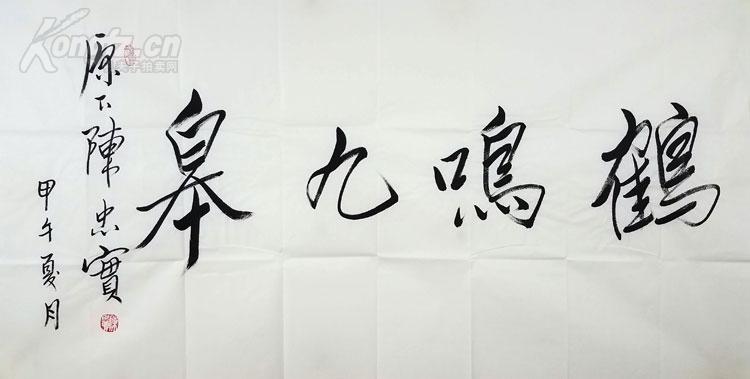 鶴鳴九皋
原下陳忠實
甲午夏月
Kongfz.cn
孔夫子拍卖网